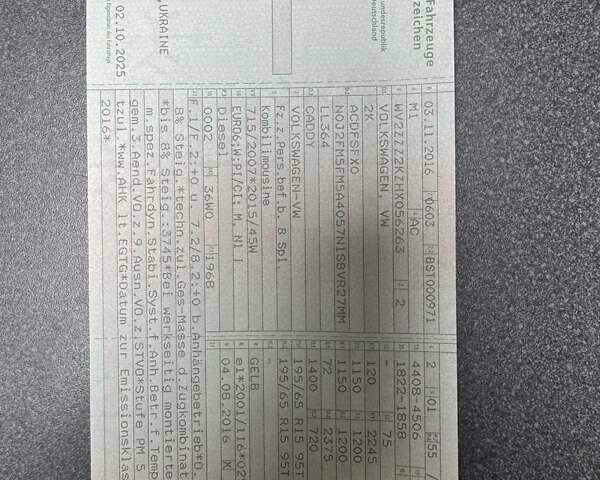 Fahrzeuge
zeichen
undesrepublik
Deutschland
UKRAINE
02.10.2025
03.11.2016 0603 BST000971
M1 AC
WV2ZZZ2KZHX056263 2
VOLKSWAGEN, VW
2K
ACDFSFX0
N0J2FM5FM5A4057N1SBVR27MM
LL364
CADDY
VOLKSWAGEN-VW
Fz.z.Pers.bef.b. 8 Spl.
Kombilimousine
715/2007*2015/45W
EURO6;W;PI/CI; M, N1 I
Diesel
0002 36W0 1968
F.1/F.2:+0 u. 7.2/8.2:+0 b.Anhängebetrieb*0.
8% Steig.*techn.zul.Ges-Masse d.Zugkombinat
*bis 8% Steig.:3745*Bei werkseitig montierte
m.spez.Fahrdyn.Stabi.Syst.f.Anh.Betr.f.Temp
gem.3.Aend.VO.z.9.Ausn.VO.z.StVO*Stufe PM 5
tzul.*ww.AHK lt.EGTG*Datum zur Emissionsklas
2016*
2 01 55 /
4408-4506
1822-1858
- 75
120 2245
1150 1200
1150 1200
72 2375
1400 720
195/65 R15 95T
195/65 R15 95T
-
GELB
e1*2001/116*02
04.08.2016 K